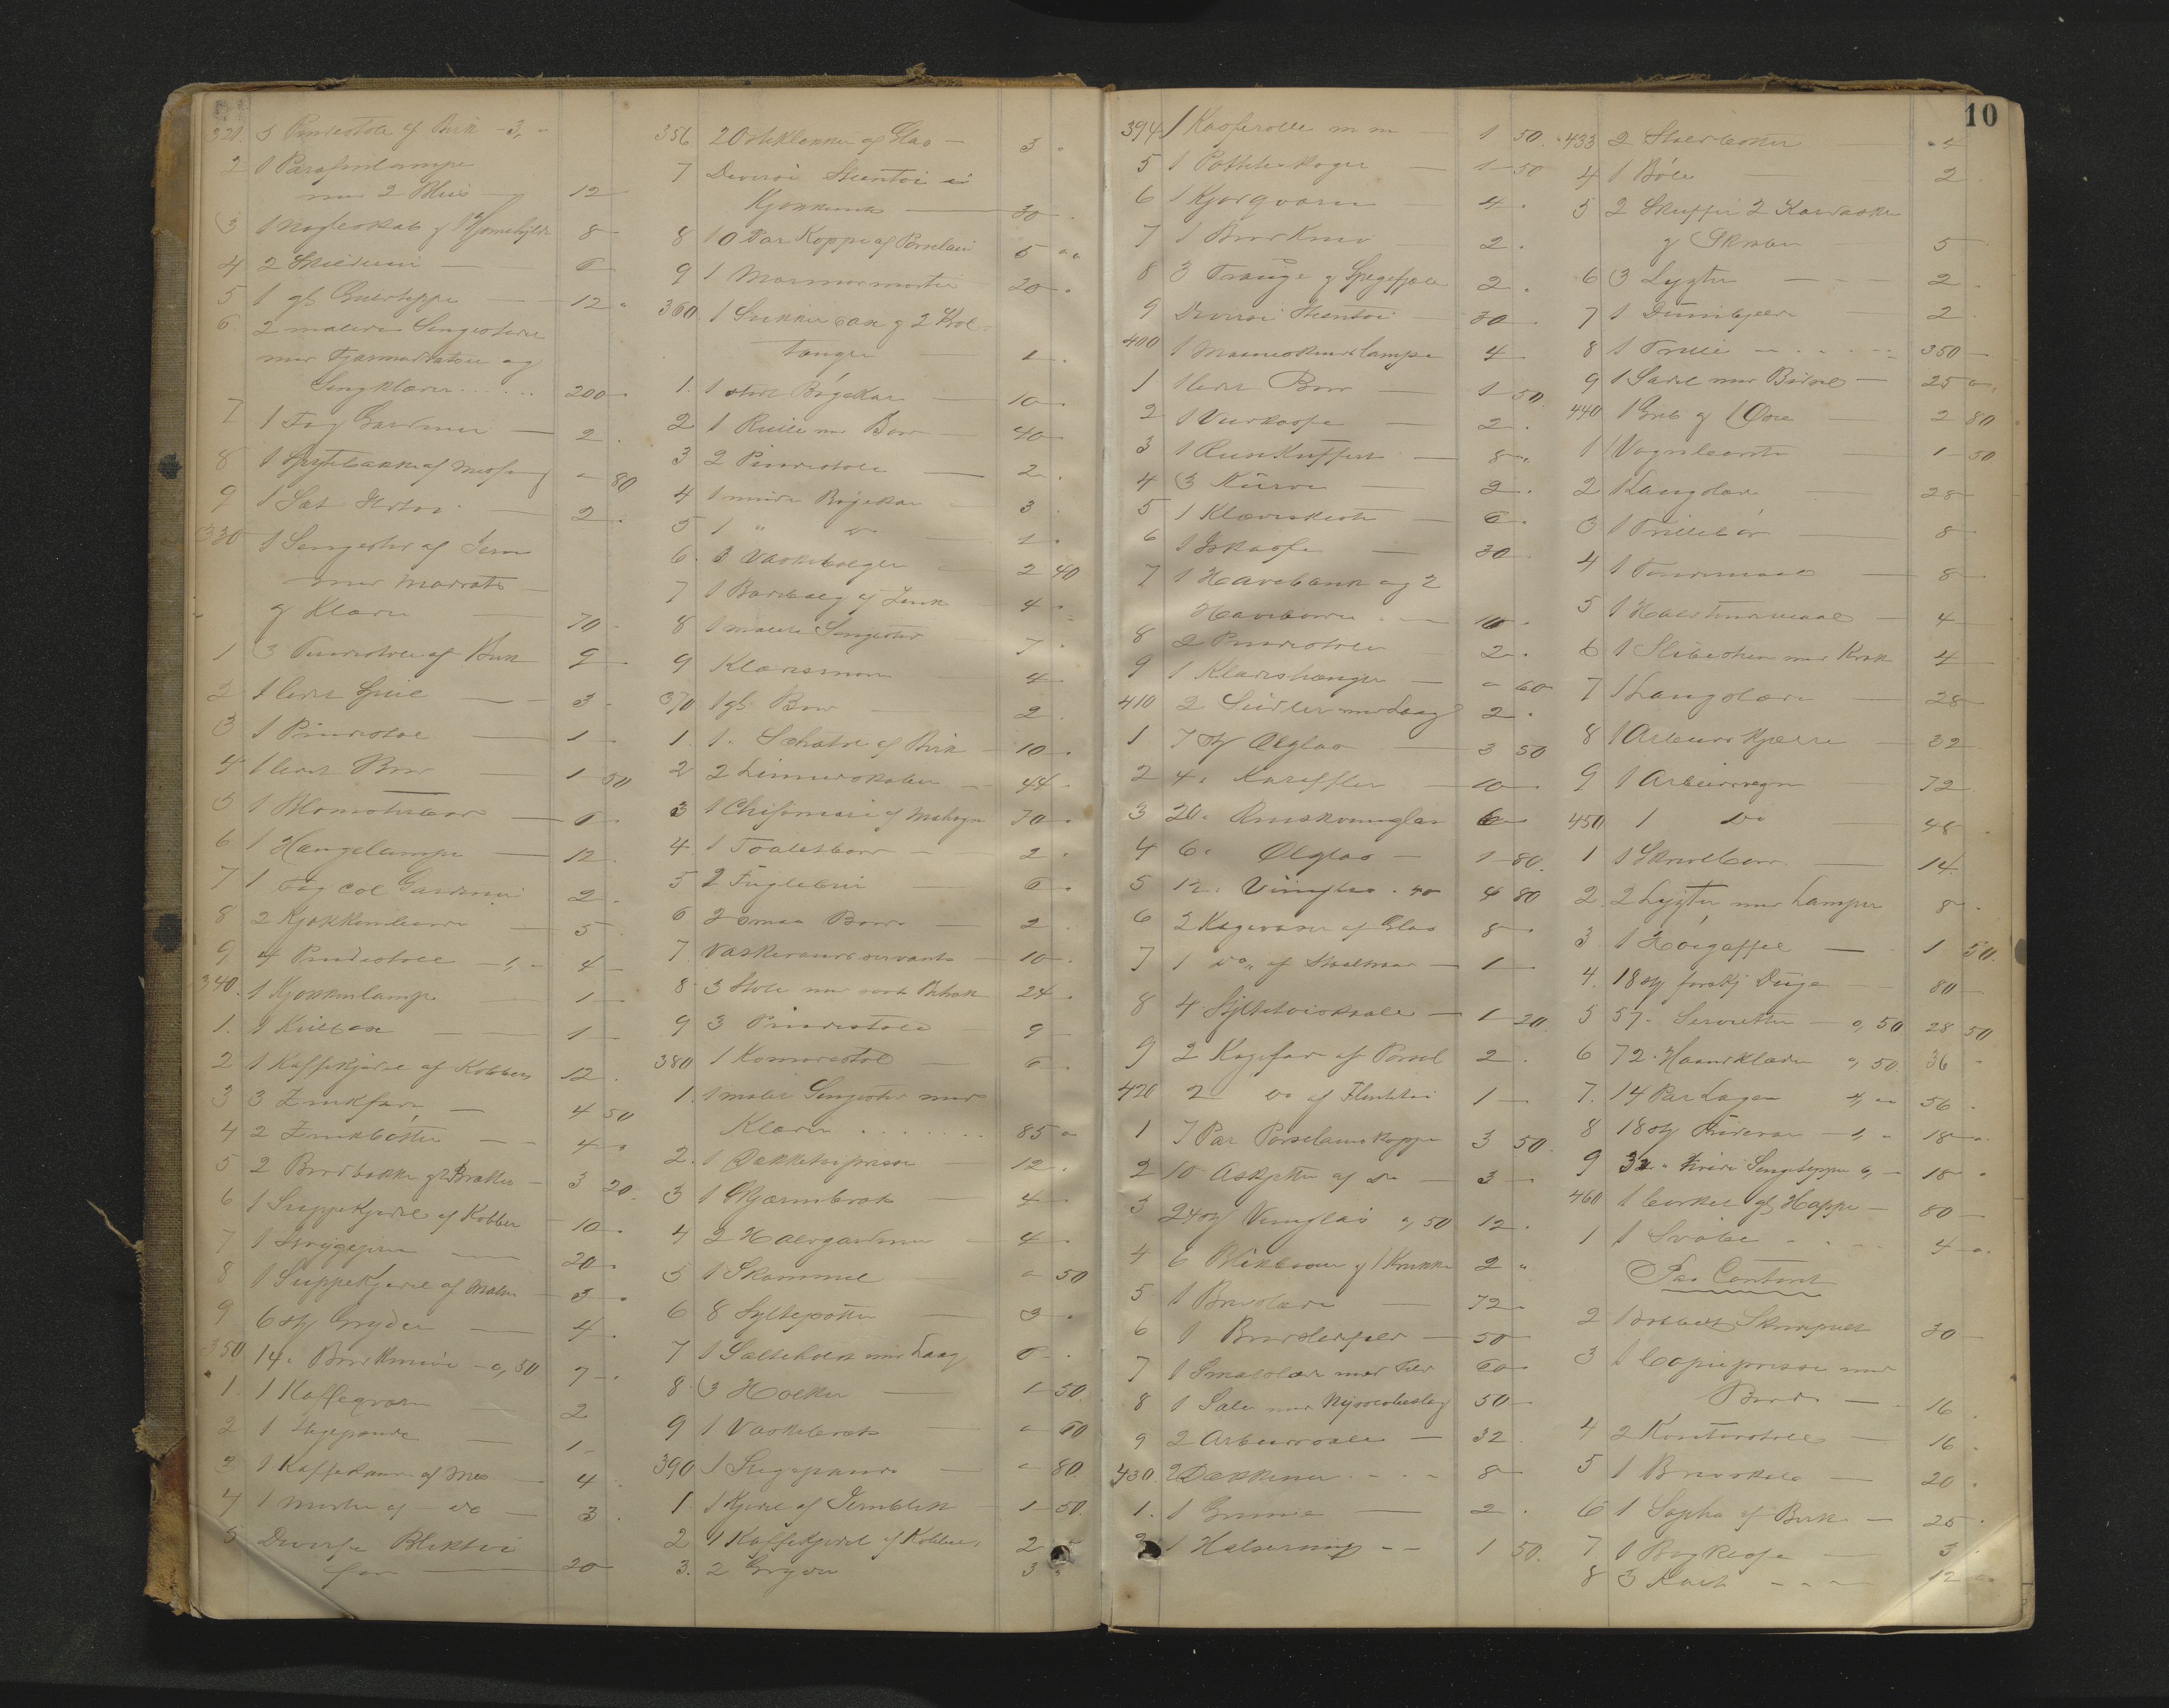 10
321. 3 Pindestole af Birk - 3, -
2 1 Parafinlampe
med 2 Blus 12
3 1 Nøgleskab g 1 Hjørnehylde 8
4 2 Skilderier 6
5 1 gl Gulvteppe 12
6 2 malede Sengesteder
med Fjærmadratser og
Sengklæder 200
7 1 Fag Gardiner 2
8 1 Spyttebakke af Messing - 80
9 1 Sæt 2
330 1 Sengested af Jern
med Madrats
g Klæder 70
1 3 Pindestole af Birk 9
2 1 lidet Speil 3
3 1 Pindestol 1
4 1 lidet Bord 1 50
5 1 Blomsterbord 6
6 1 Hængelampe 12
7 1 Fag col Gardiner 2
8 2 Kjøkkenborde 5
9 4 Pindestole - 1, - 4
340. 1 Kjøkkenlampe 1
1. 1 Kulbox 1
2 1 Kaffekjedel af Kobber 12
3 3 Zinkfade 4 50
4 2 Zinkbøtter 4
5 2 Brødbakker g 2 Bratter 3 20
6 1 Suppekjedel af Kobber 10
7 1 Strygejern 20
8 1 Suppekjedel af Malm 3
9 6 stk Gryder 4
350 14 " Bordknive - a, 50 7
1. 1 Kaffeqværn 2
2 1 Stegepande 1
3 1 Kaffekande af Mes 4
4 1 Morter af - do 3
5 Diverse Bliktøi
for 20
356 2 Osteklokker af Glas 3
7 Diverse Stentøi i
Kjøkkenet 30
8 10 Par Kopper af Porselæn 5
9 1 Marmormorter 20
360 1 Sukkersax g 2 Kul-
tænger 1
1. 1 stort Bøgekar 10
2 1 Rulle med Bord 40
3 2 Pindestole 2
4 1 mindre Bøgekar 3
5 1 " do 1
6. 3 Vaskebalger 2 40
7 1 Badebalg af Zink 4
8 1 malet Sengested 7
9 Klædesnor 4
370 1 gl Bord 2
1. 1 " Schatol af Birk 10
2 2 Linnedskabe 44
3 1 Chifoniere af Mahogn 70
4. 1 Toaletbord 2
5 2 Fuglebur 6
6 2 smaa Borde 2
7. Vaskevandsservante 10
8 3 Stole med sort Betræk 24
9 3 Pindestole 9
380 1 Komodestol 6
1. 1 malet Sengested med
Klæder 85
2. 1 Dækketøipresse 12
3 1 Skjærmbræt 4
4 2 Halvgardiner 4
5 1 Skammel - 50
6 8 Syltepotter 3
7 1 Salteholk med Laag 6
8. 3 Holker 1 50
9 1 Vaskebræt - 60
390 1 Stegepande - 80
1. 1 Kjedel af Jernblik 1 50
2 1 Kaffekjedel af Kobber 2
3. 2 Gryder 3
394 1 Kasserolle m m 1 50
5 1 Potteteskoger 1 50
6 1 Kjødqværn 4
7 1 Brødkniv 2
8 3 Trauge g Spegefjæle 2
9 Diverse Stentøi 30
400 1 Maaneskinslampe 4
1 1 lidet Bord 1 50
2 1 Vedkasse 2
3 1 Reisekuffert 8
4 3 Kurve 2
5 1 Klædeskiste 6
6 1 Iskasse 30
7 1 Havebænk og 2
Haveborde 10
8 2 Pindestole 2
9 1 Klædeshænger - 60
410 2 Seidler med Laag 2
1 7 stk Ølglas 3 50
2 4 " Karaffler 10
3 20 " Rhinskvinglas 6
4 6 " Ølglas 1 80
5 12 " Vinglas " 40 4 80
6 2 Kagevaser af Glas 8
7 1 do " af 1
8 4 Syltetøiskaale 1 20
9 2 Kagefade af Porsel 2
420 2 do af Flinttøi 1
1 7 Par Porselænskopper 3 50
2 10 Askjetter af do 3
3 24 stk Vinglas a, 50 12
4 6 Blikdaaser g 1 Krukke 2
5 1 Bredslæde 72
6 1 50
7 1 Smalslæde med Feld 60
8 1 Sæle med Nysølvbeslag 50
9 2 Arbeidssæler 32
430. 2 Dækkener 8
1. 1 Grime 2
2 1 Halsering 1 50
433 2 Stald 4
4 1 Bøle 2
5 2 Skuffer 2 Karvaske
g Skrabe 5
6 3 Lygter 2
7 1 2
8 1 Trille 350
9 1 Sadel med Bidsel 25
440 1 Greb g 1 Øxe 2 80
1 1 Vognbørste 1 50
2 1 Langslæde 28
3 1 Trillebør 8
4 1 Tøndemaal 8
5 1 Halvtøndemaal 4
6 1 Slibesten med Krak 4
7 1 Langslæde 28
8 1 Arbeidskjærre 32
9 1 Arbeidsvogn 72
450 1 Do 48
1 1 Skrivebord 14
2 2 Lygter med Lamper 8
3 1 Høigaffel 1 50
4. 18 stk forskj Duge 80
5 57 " Servietter - a, 50 28 50
6 72 " Haandklæder a, 50 36
7. 14 Par Lagen 4, - 56
8 18 stk Pudevar - 1, - 18
9 3 " hvide Sengetepper 6, - 18
460 1 Cirkel gl Happe 80
1 1 4
Paa Contoret
2 1 Dobbelt Skrivepult 30
3 1 Copiepresse med
Bord 16
4 2 Kontorstole 16
5 1 Brevskab 20
6 1 Sopha af Birk 25
7 1 3
8 3 Kart 12